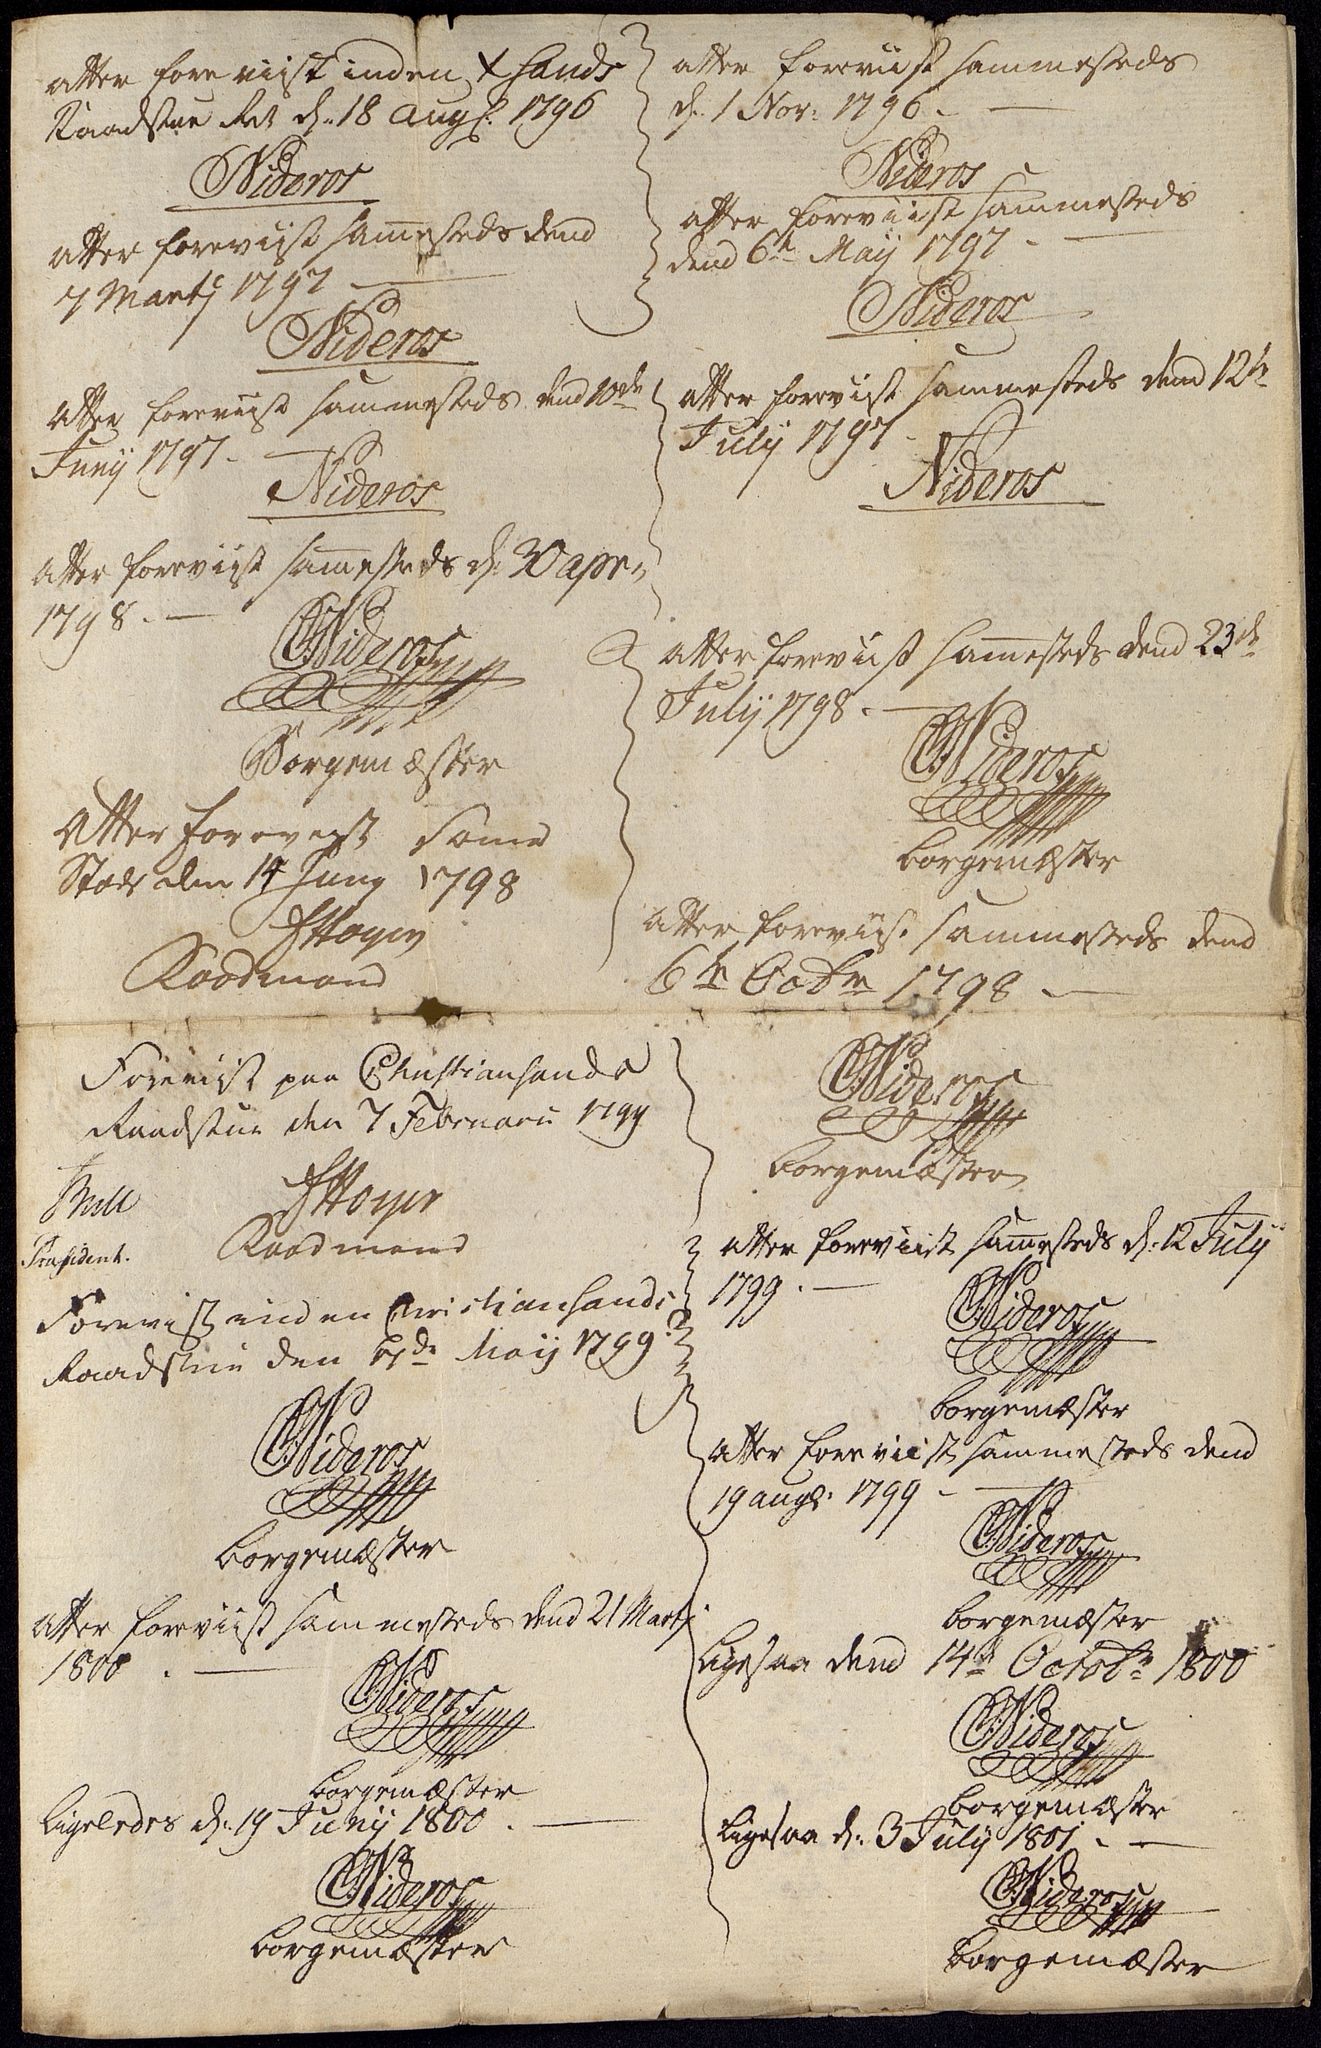 atter foreviist inden Xsands
Raadstue Ret d: 18 Augs: 1796
Nideros
atter foreviist sam̅esteds dend
7 Martj 1797
Nideros
atter foreviist sammesteds dend 10de
Junij 1797 -
Nideros
atter foreviist sam̅esteds d: 30 apr:
1798. -
Nideros
Borgemæster
Atter forevist samme
Stæds den 14 Juny 1798
Raadmand
Foreviist paa Christiansands
Raadstue den 7 Februarii 1799
Præsident.
Raadmand
Forevist inden Christiansands
Raadstue den 7de Maij 1799.
Nideros
borgemæster
atter foreviist sammesteds dend 21 Martj
1800. -
Nideros
borgemæster
ligeledes d: 19 Junij 1800. -
Nideros
borgemæster
atter foreviist sammesteds
d: 1 Nov: 1796 -
Nideros
atter foreviist sam̅esteds
dend 6te Maij 1797 -
Nideros
atter foreviist sammesteds dend 12te
July 1797 -
Nideros
atter foreviist sam̅esteds dend 23de
Julij 1798. -
Nideros
borgemæster
atter foreviist sammesteds dend
6te Octbr 1798 -
Nideros
borgemæster
atter foreviist sam̅esteds d: 12 Julij
1799. -
Nideros
borgemæster
atter foreviist sammesteds dend
19 augs: 1799 -
Nideros
borgemæster
ligesaa dend 14de Octobr 1800
Nideros
borgemæster
ligesaa d: 3 Julij 1801. -
Nideros
borgemæster